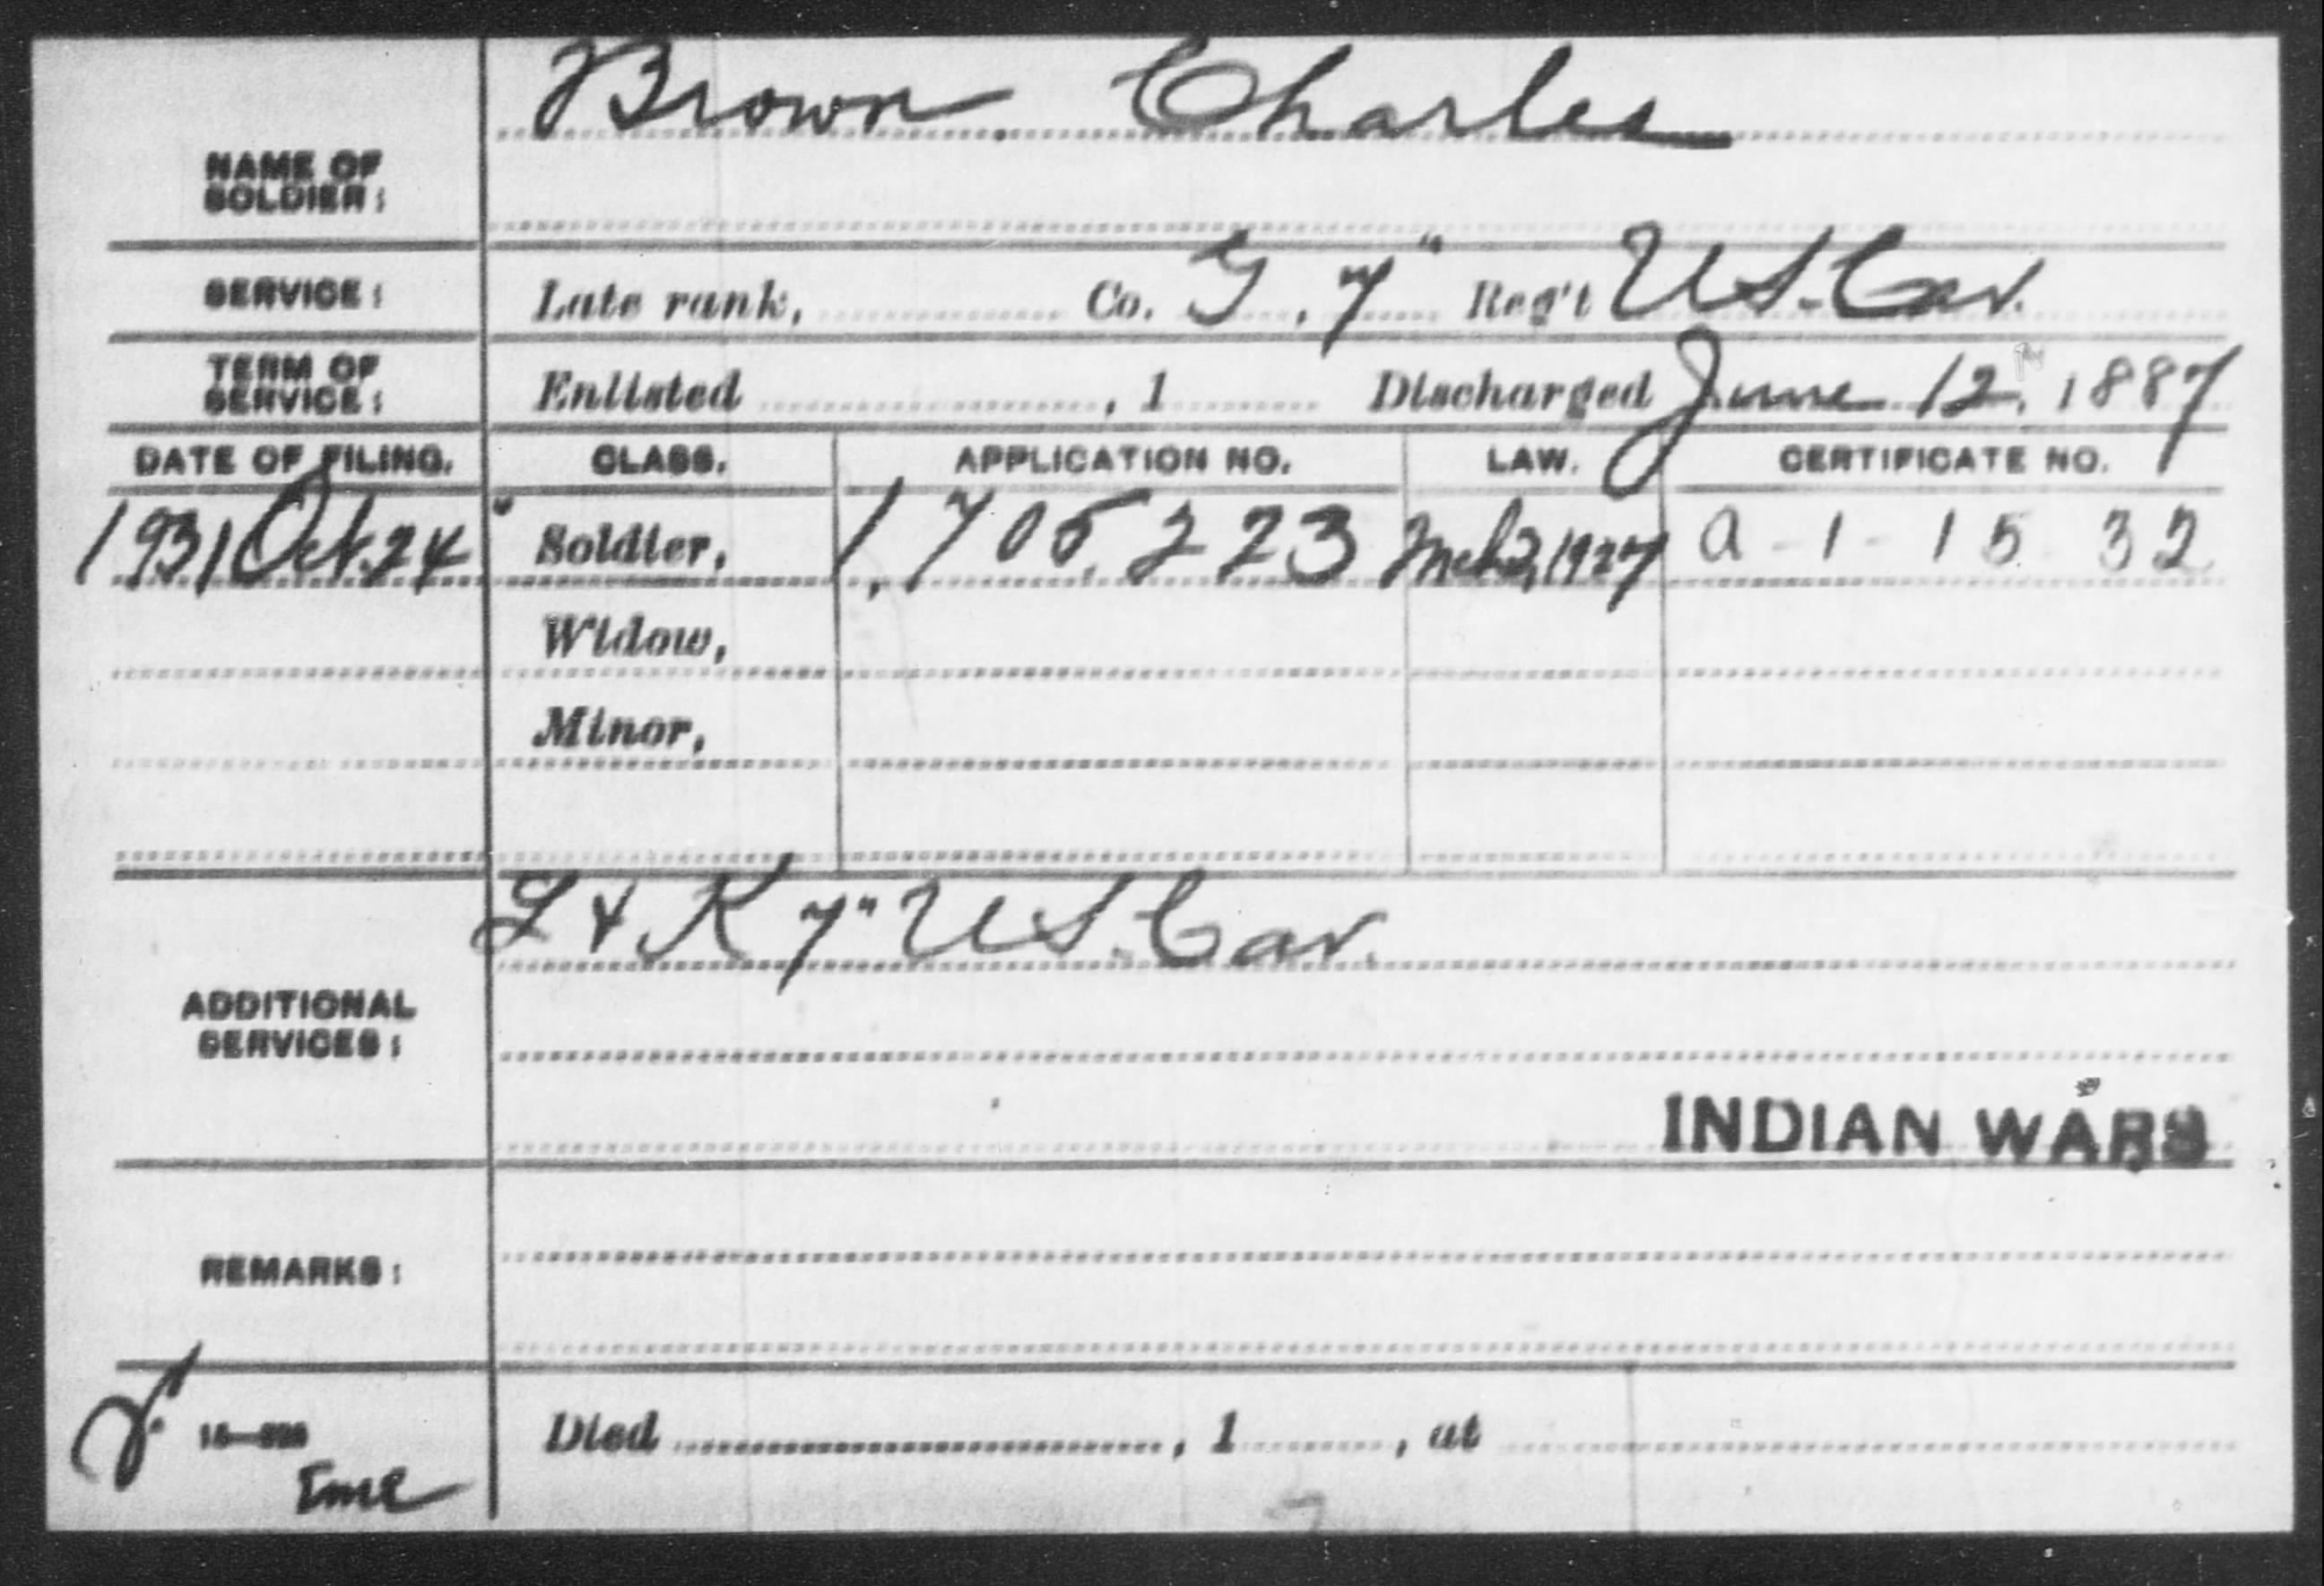 Brown, Charles
NAME OF
SOLDIER:
SERVICE: Late rank, Co. G, 7" Reg't U.S. Cav.
TERM OF
SERVICE: Enlisted , 1 Discharged June 12, 1887
DATE OF FILING. CLASS. APPLICATION NO. LAW. CERTIFICATE NO.
1931 Oct. 24 Soldier, 1,705,223 Mch 2, 1927 A-1-15 32
Widow,
Minor,
L & K 7" U.S. Cav.
ADDITIONAL
SERVICES:
INDIAN WARS
REMARKS:
Died , 1 , at